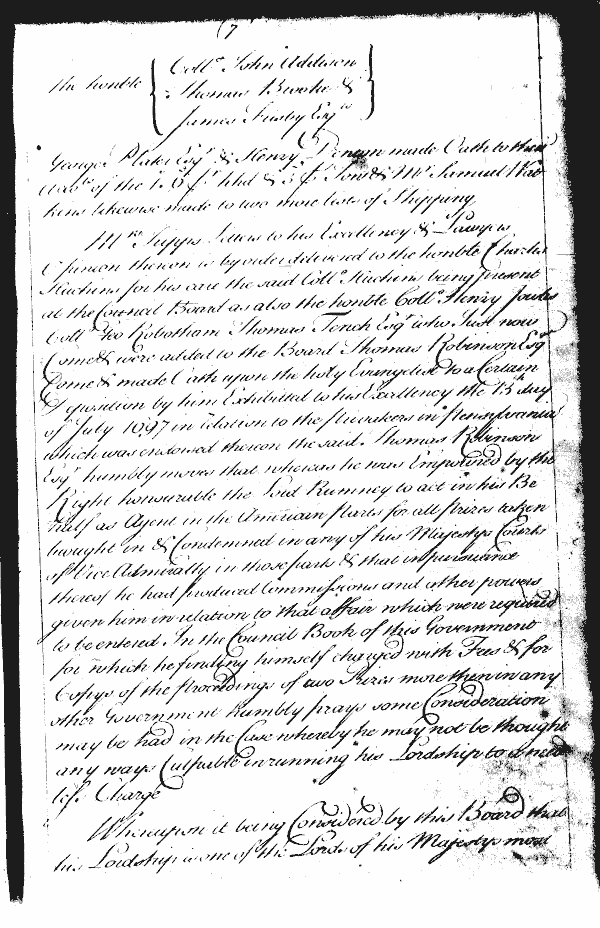 (7
The honble { Coll.o John Addison
Thomas Brooke &
James Frisby Esq.rs }
George Plater Esq.r & Henry Denton made Oath to their
of the 1.s p.r hhd & 3.d p.r Ton & M.r Samuel Wat
kins likewise made to two more lists of Shipping
M.rs Letters to his Excellency & Lawyers
Opinion thereon is by order delivered to the honble Charles
Hutchins for his care the said Coll.o Hutchins being present
at the Council Board as also the honble Coll.o Henry Jowles
Coll.o Geo Robotham Thomas Tench Esq.r who Just now
Come & were added to the Board Thomas Robinson Esq.r
Come & made Oath upon the holy Evangelist to a Certain
Deposition by him Exhibited to his Excellency the 15.th day
of July 1697 in relation to the Privateers in Pensylvania
which was endorsed thereon the said Thomas Robinson
Esq.r humbly moves that whereas he was Empowred by the
Right honourable the Lord Rumney to act in his Be
half as Agent in the American Parts for all Prizes taken
brought in & Condemned in any of his Majestys Courts
of Vice Admiralty in those parts & that in pursuance
thereof he had produced Commissions and other powers
given him in relation to that affair which were required
to be entered In the Council Book of this Government
for which he finding himself charged with Fees & for
Copys of the Proceedings of two Prizes more then in any
other Government humbly prays some Consideration
may be had in the Case whereby he may not be thought
any ways Culpable in running his Lordship to a need
less Charge
Whereupon it being Considered by this Board that
his Lordship is one of the Lords of his Majestys most